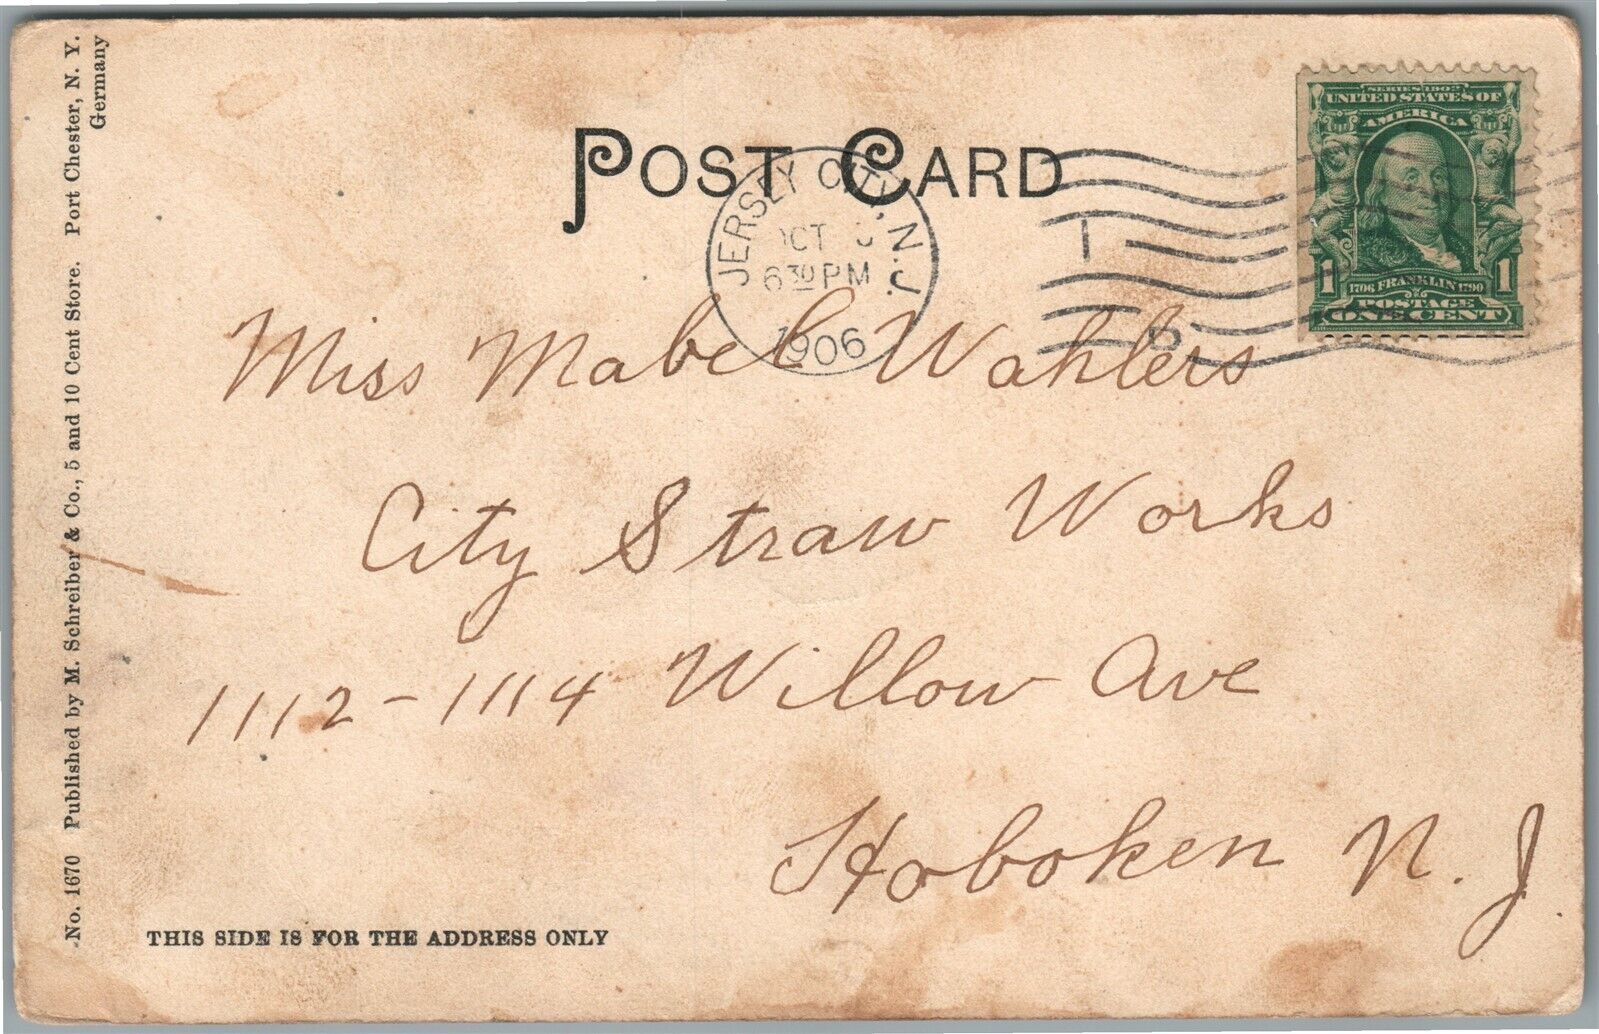 No. 1670 Published by M. Schreiber & Co., 5 and 10 Cent Store. Port Chester, N. Y.
Germany
POST CARD
JERSEY CITY, N.J.
OCT
6 30 PM
1906
SERIES 1902
UNITED STATES OF
AMERICA
1706 FRANKLIN 1790
1 1
POSTAGE
ONE CENT
Miss Mabel Wahlers
City Straw Works
1112-1114 Willow Ave
Hoboken N. J.
THIS SIDE IS FOR THE ADDRESS ONLY